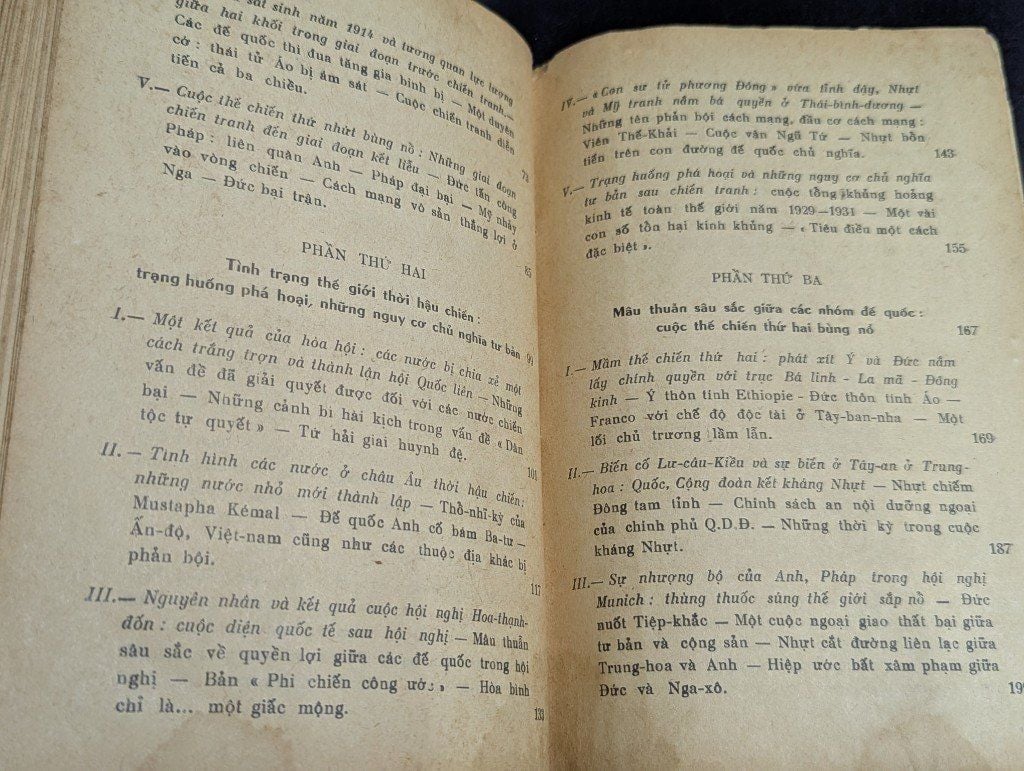 sát sinh năm 1914 và tương quan lực lượng
giữa hai khối trong giai đoạn trước chiến tranh.—
Các đế quốc thi đua tăng gia binh bị — Một duyên
cớ : thái tử Áo bị ám sát — Cuộc chiến tranh diễn
tiến cả ba chiều. 73
V.— Cuộc thế chiến thứ nhứt bùng nổ : Những giai đoạn
chiến tranh đến giai đoạn kết liễu — Đức tấn công
Pháp : liên quân Anh — Pháp đại bại — Mỹ nhảy
vào vòng chiến — Cách mạng vô sản thắng lợi ở
Nga — Đức bại trận. 85
PHẦN THỨ HAI
Tình trạng thế giới thời hậu chiến :
trạng huống phá hoại, những nguy cơ chủ nghĩa tư bản
I.— Một kết quả của hòa hội : các nước bị chia xẻ một
cách trắng trợn và thành lập hội Quốc liên — Những
vấn đề đã giải quyết được đối với các nước chiến
bại — Những cảnh bi hài kịch trong vấn đề « Dân
tộc tự quyết » — Tứ hải giai huynh đệ. 101
II.— Tình hình các nước ở châu Âu thời hậu chiến:
những nước nhỏ mới thành lập — Thổ-nhĩ-kỳ của
Mustapha Kémal — Đế quốc Anh cố bám Ba-tư —
Ấn-độ, Việt-nam cũng như các thuộc địa khác bị
phản bội. 117
III.— Nguyên nhân và kết quả cuộc hội nghị Hoa-thạnh-
đốn : cuộc diện quốc tế sau hội nghị — Mâu thuẫn
sâu sắc về quyền lợi giữa các đế quốc trong hội
nghị — Bản « Phi chiến công ước » — Hòa bình
chỉ là... một giấc mộng. 133
IV.— « Con sư tử phương Đông » vừa tỉnh dậy, Nhựt
và Mỹ tranh nắm bá quyền ở Thái-bình-dương —
Những tên phản bội cách mạng, đầu cơ cách mạng :
Viên Thế-Khải — Cuộc vận Ngũ Tứ — Nhựt bồn
tiến trên con đường đế quốc chủ nghĩa. 143
V.— Trạng huống phá hoại và những nguy cơ chủ nghĩa
tư bản sau chiến tranh : cuộc tổng khủng hoảng
kinh tế toàn thế giới năm 1929—1931 — Một vài
con số tồn hại kinh khủng — « Tiêu điều một cách
đặc biệt ». 155
PHẦN THỨ BA
Mâu thuẫn sâu sắc giữa các nhóm đế quốc :
cuộc thế chiến thứ hai bùng nổ 167
I.— Mầm thế chiến thứ hai : phát xít Ý và Đức nắm
lấy chính quyền với trục Bá linh - La mã - Đông
kinh — Ý thôn tính Ethiopie - Đức thôn tính Áo —
Franco với chế độ độc tài ở Tây-ban-nha — Một
lối chủ trương lầm lẫn. 169
II.— Biến cố Lư-câu-Kiều và sự biến ở Tây-an ở Trung-
hoa : Quốc, Cộng đoàn kết kháng Nhựt — Nhựt chiếm
Đông tam tỉnh — Chính sách an nội dưỡng ngoại
của chính phủ Q.D.Đ. — Những thời kỳ trong cuộc
kháng Nhựt. 187
III.— Sự nhượng bộ của Anh, Pháp trong hội nghị
Munich : thùng thuốc súng thế giới sắp nổ — Đức
nuốt Tiệp-khắc — Một cuộc ngoại giao thất bại giữa
tư bản và cộng sản — Nhựt cắt đường liên lạc giữa
Trung-hoa và Anh — Hiệp ước bất xâm phạm giữa
Đức và Nga-xô.